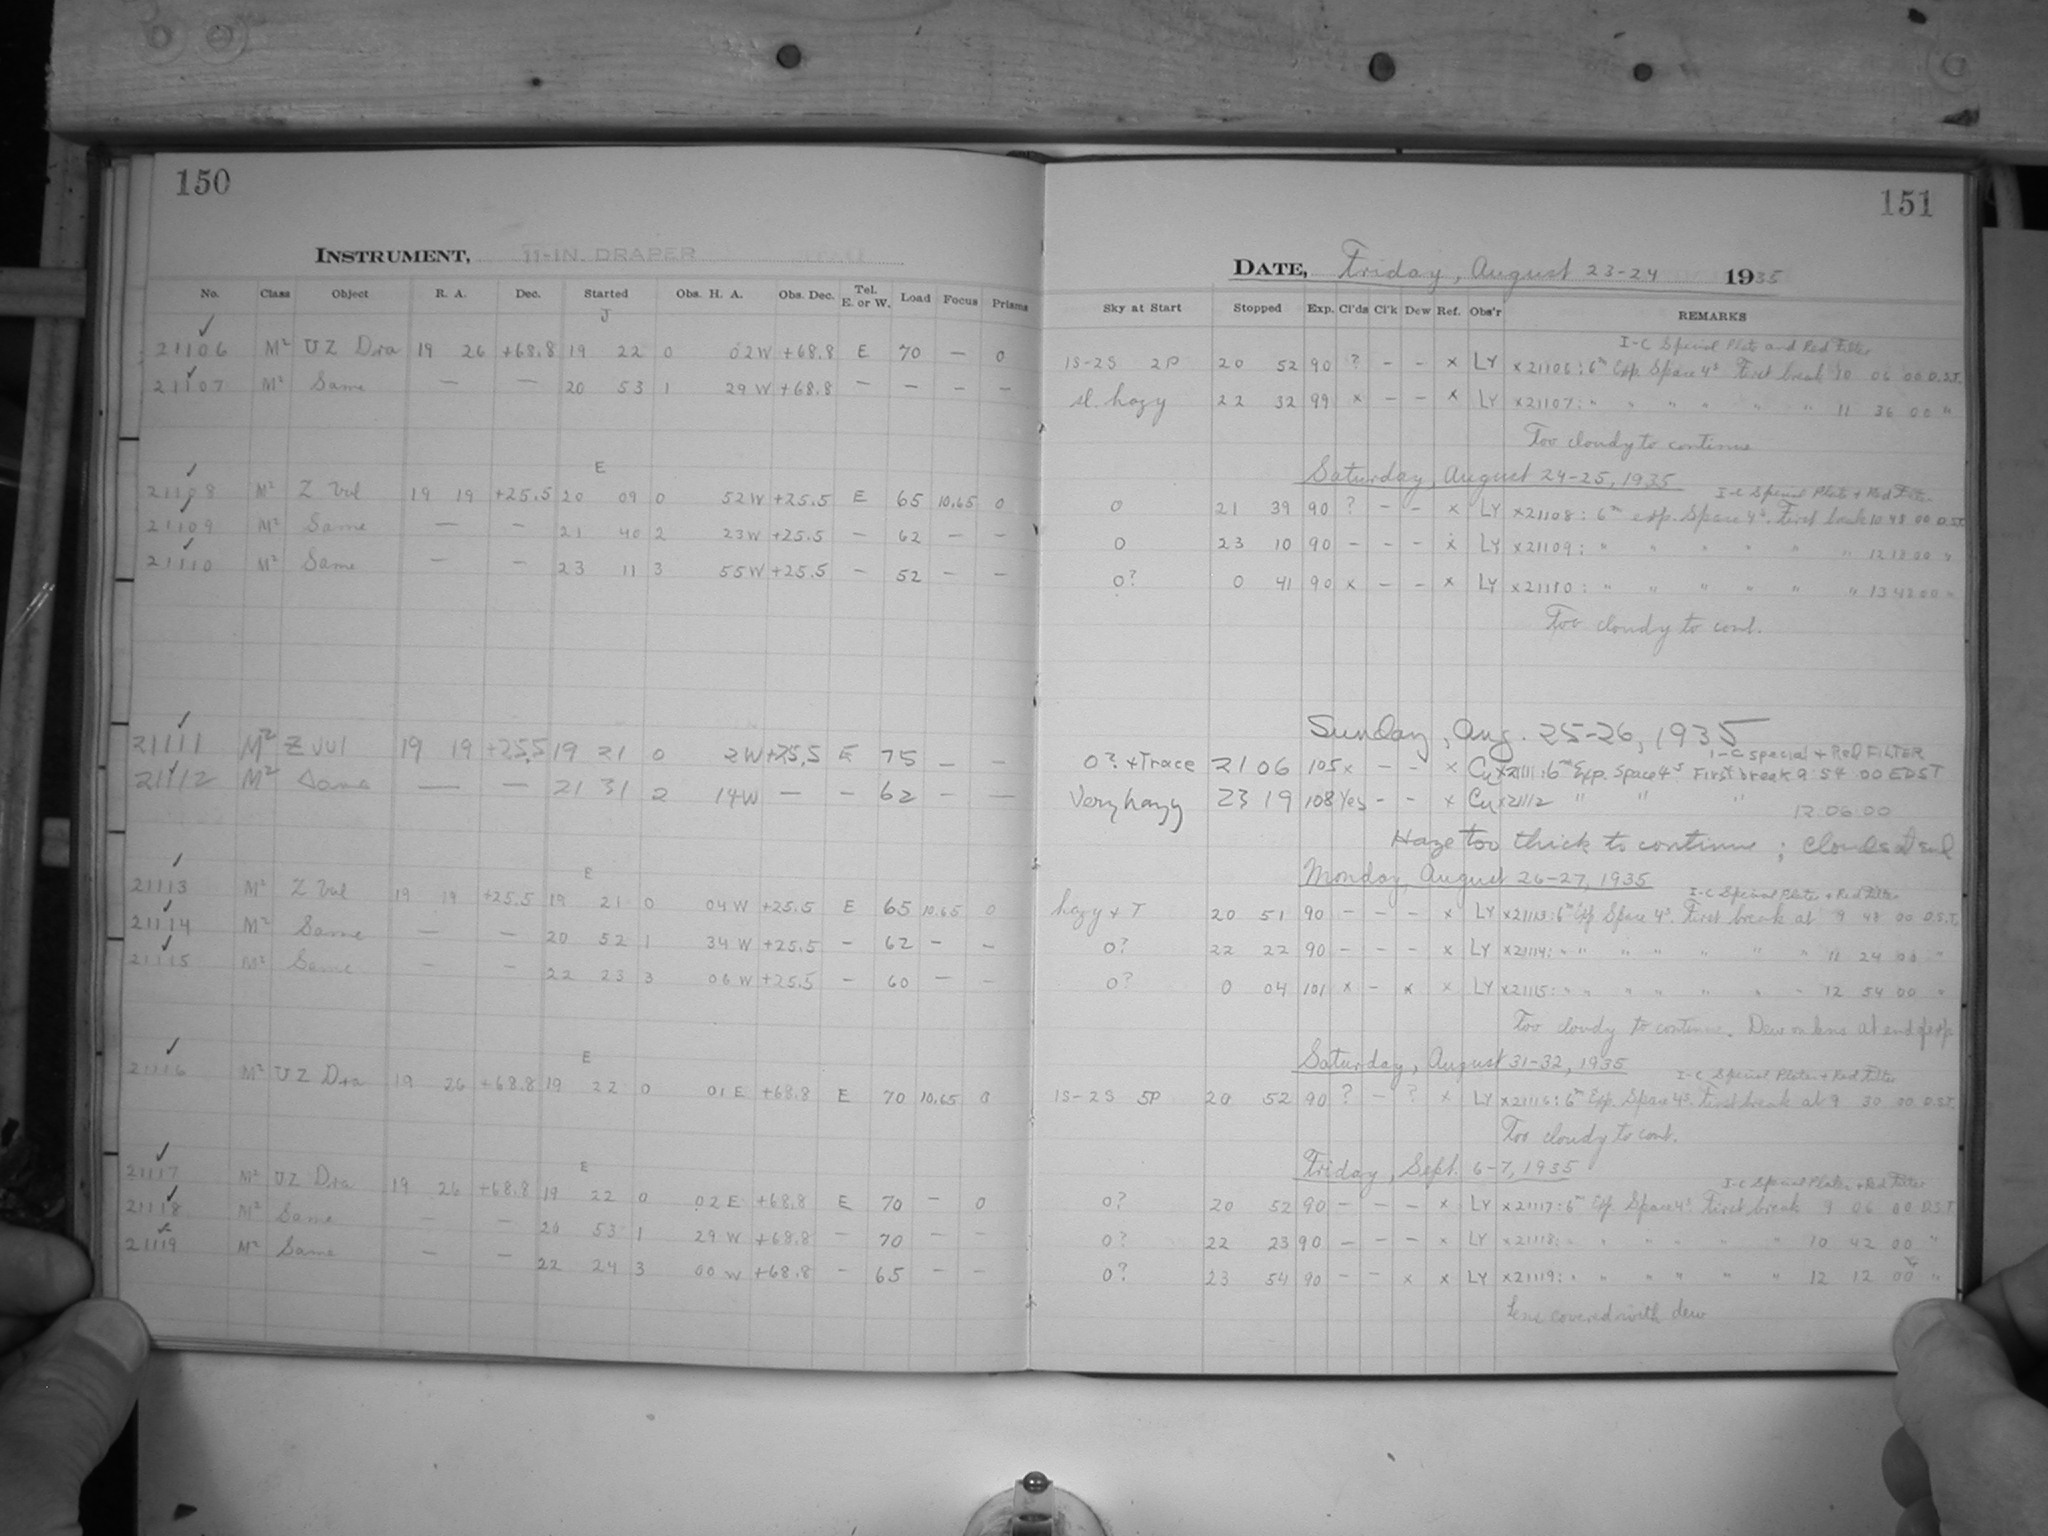 150
INSTRUMENT, 11-IN. DRAPER
No. Class Object R. A. Dec. Started Obs. H. A. Obs. Dec. Tel. E. or W. Load Focus Prisms
J
21106 M² UZ Dra 19 26 +68.8 19 22 0 02W +68.8 E 70 — 0
21107 M² Same — — 20 53 1 29 W +68.8 — — — —
E
21108 M² Z Vul 19 19 +25.5 20 09 0 52W +25.5 E 65 10.65 0
21109 M² Same — — 21 40 2 23W +25.5 — 62 — —
21110 M² Same — — 23 11 3 55W +25.5 — 52 — —
21111 M² Z Vul 19 19 +25.5 19 21 0 2W +25.5 E 75 — —
21112 M² Same — — 21 31 2 14W — — 62 — —
E
21113 M² Z Vul 19 19 +25.5 19 21 0 04 W +25.5 E 65 10.65 0
21114 M² Same — — 20 52 1 34 W +25.5 — 62 — —
21115 M² Same — — 22 23 3 06 W +25.5 — 60 — —
E
21116 M² UZ Dra 19 26 +68.8 19 22 0 01 E +68.8 E 70 10.65 0
E
21117 M² UZ Dra 19 26 +68.8 19 22 0 02 E +68.8 E 70 — 0
21118 M² Same — — 20 53 1 29 W +68.8 — 70 — —
21119 M² Same — — 22 24 3 00 W +68.8 — 65 — —
151
DATE, Friday, August 23-24 1935
Sky at Start Stopped Exp. Cl'ds Cl'k Dew Ref. Obs'r REMARKS
I-C Special Plate and Red Filter
1S-2S 2P 20 52 90 ? — — x LY x21106: 6ᵐ Exp. Space 4ˢ First break 10 06 00 D.S.T.
sl. hazy 22 32 99 x — — x LY x21107: " " " " " " 11 36 00 "
Too cloudy to continue
Saturday, August 24-25, 1935
I-C Special Plate + Red Filter
0 21 39 90 ? — — x LY x21108: 6ᵐ exp. Space 4ˢ. First break 10 48 00 D.S.T.
0 23 10 90 — — — x LY x21109: " " " " " " 12 18 00 "
0? 0 41 90 x — — x LY x21110: " " " " " " 13 42 00 "
Too cloudy to cont.
Sunday, Aug. 25-26, 1935
I-C special + Red FILTER
0? + Trace 21 06 105 x — — x Cy x21111: 6ᵐ Exp. Space 4ˢ First break 9:54 00 EDST
Very hazy 23 19 108 Yes — — x Cy x21112 " " " 12:06:00
Haze too thick to continue; Clouds at end
Monday, August 26-27, 1935
I-C Special Plate + Red Filter
hazy + T 20 51 90 — — — x LY x21113: 6ᵐ Exp. Space 4ˢ. First break at 9 48 00 D.S.T.
0? 22 22 90 — — — x LY x21114: " " " " " " 11 24 00 "
0? 0 04 101 x — x x LY x21115: " " " " " " 12 54 00 "
Too cloudy to continue. Dew on lens at end of exp
Saturday, August 31-32, 1935
I-C Special Plate + Red Filter
1S-2S 5P 20 52 90 ? — ? x LY x21116: 6ᵐ Exp. Space 4ˢ. First break at 9 30 00 D.S.T.
Too cloudy to cont.
Friday, Sept. 6-7, 1935
I-C Special Plate + Red Filter
0? 20 52 90 — — — x LY x21117: 6ᵐ Exp. Space 4ˢ. First break 9 06 00 D.S.T.
0? 22 23 90 — — — x LY x21118: " " " " " 10 42 00 "
0? 23 54 90 — — x x LY x21119: " " " " " 12 12 00 "
Lens covered with dew